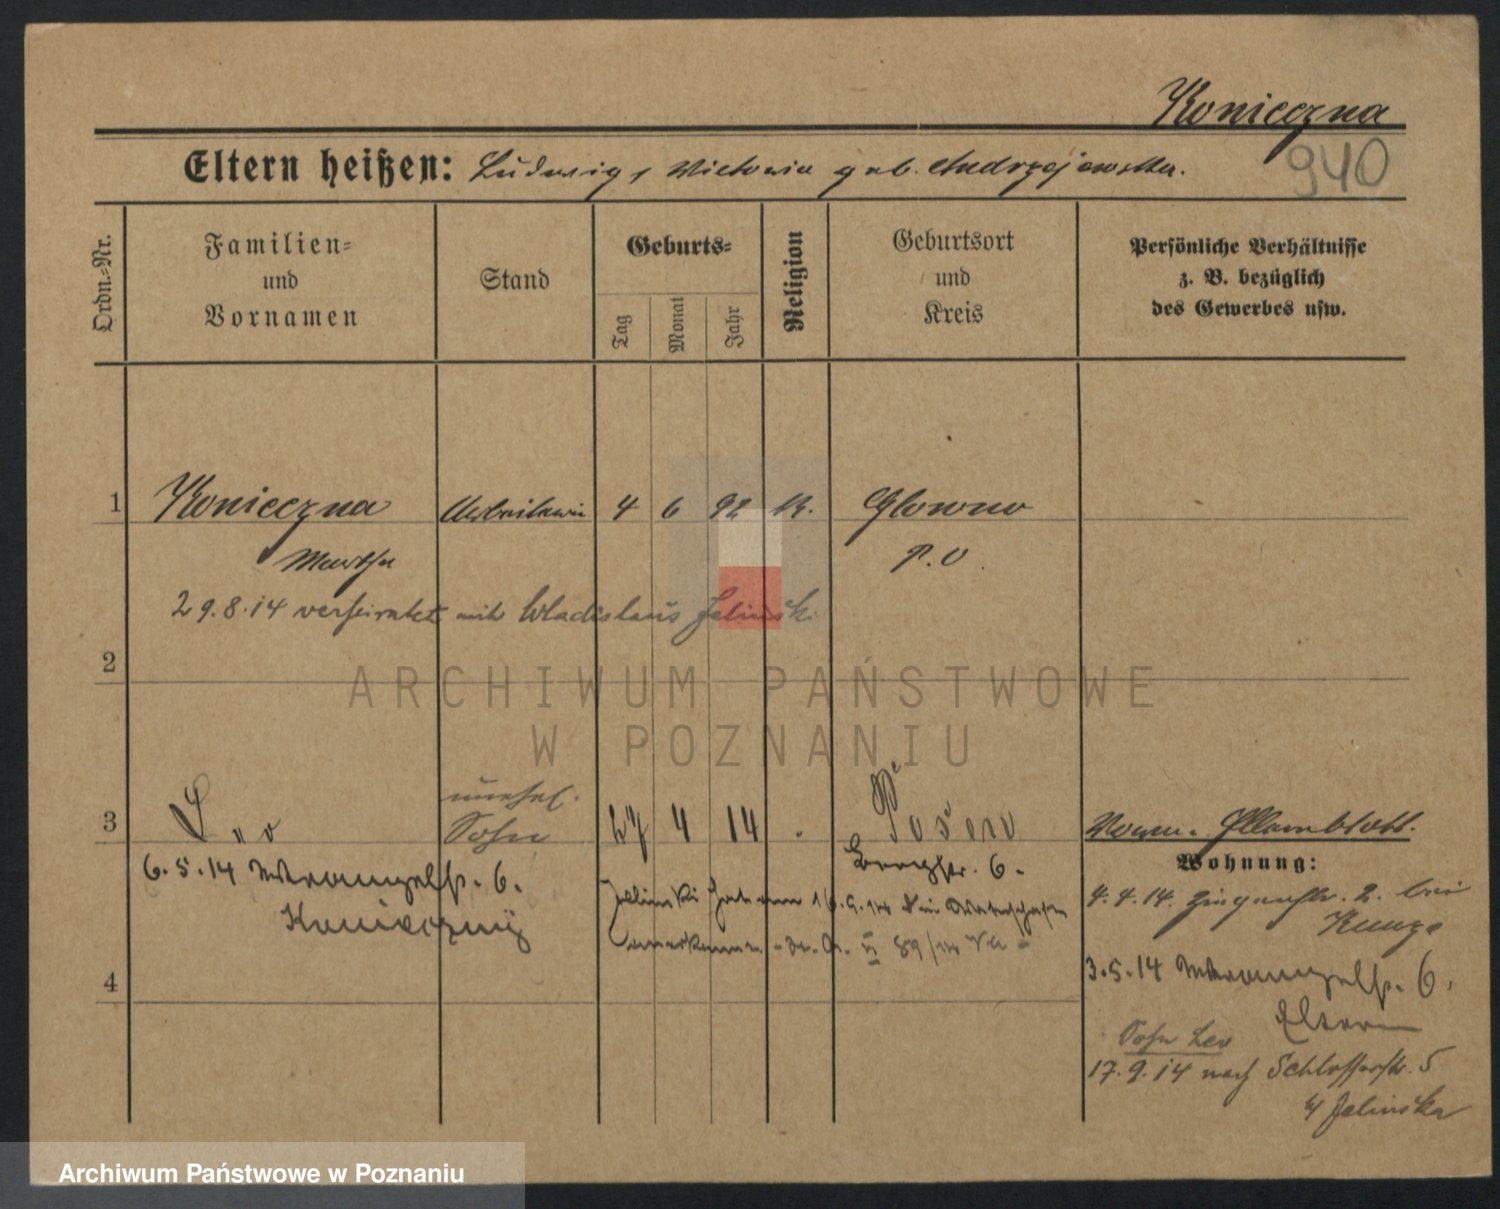 Konieczna
940
Eltern heißen: Ludwig, Victoria geb. Andrzejewska.
Ordn.-Nr.
Familien-
und
Vornamen
Stand
Geburts-
Tag
Monat
Jahr
Religion
Geburtsort
und
Kreis
Persönliche Verhältnisse
z. B. bezüglich
des Gewerbes usw.
1 Konieczna Arbeiterin 4 6 92 K. Glowno
Martha P. O.
29.8.14 verheiratet mit Wladislaus Jelinsk.
2
ARCHIWUM PAŃSTWOWE
W POZNANIU
unehel.
3 Leo Sohn 27 4 14 Posen
Bergstr. 6.
6.5.14 Wrangelstr. 6.
Konieczny
Jelinski hat am die Vaterschaft
anerkannt
4
Wohnung:
4.4.14. 2. bei
Kunze
3.5.14 Wrangelstr. 6.
Eltern
Sohn Leo
17.9.14 nach Schlosserstr. 5
Jelinska
Archiwum Państwowe w Poznaniu